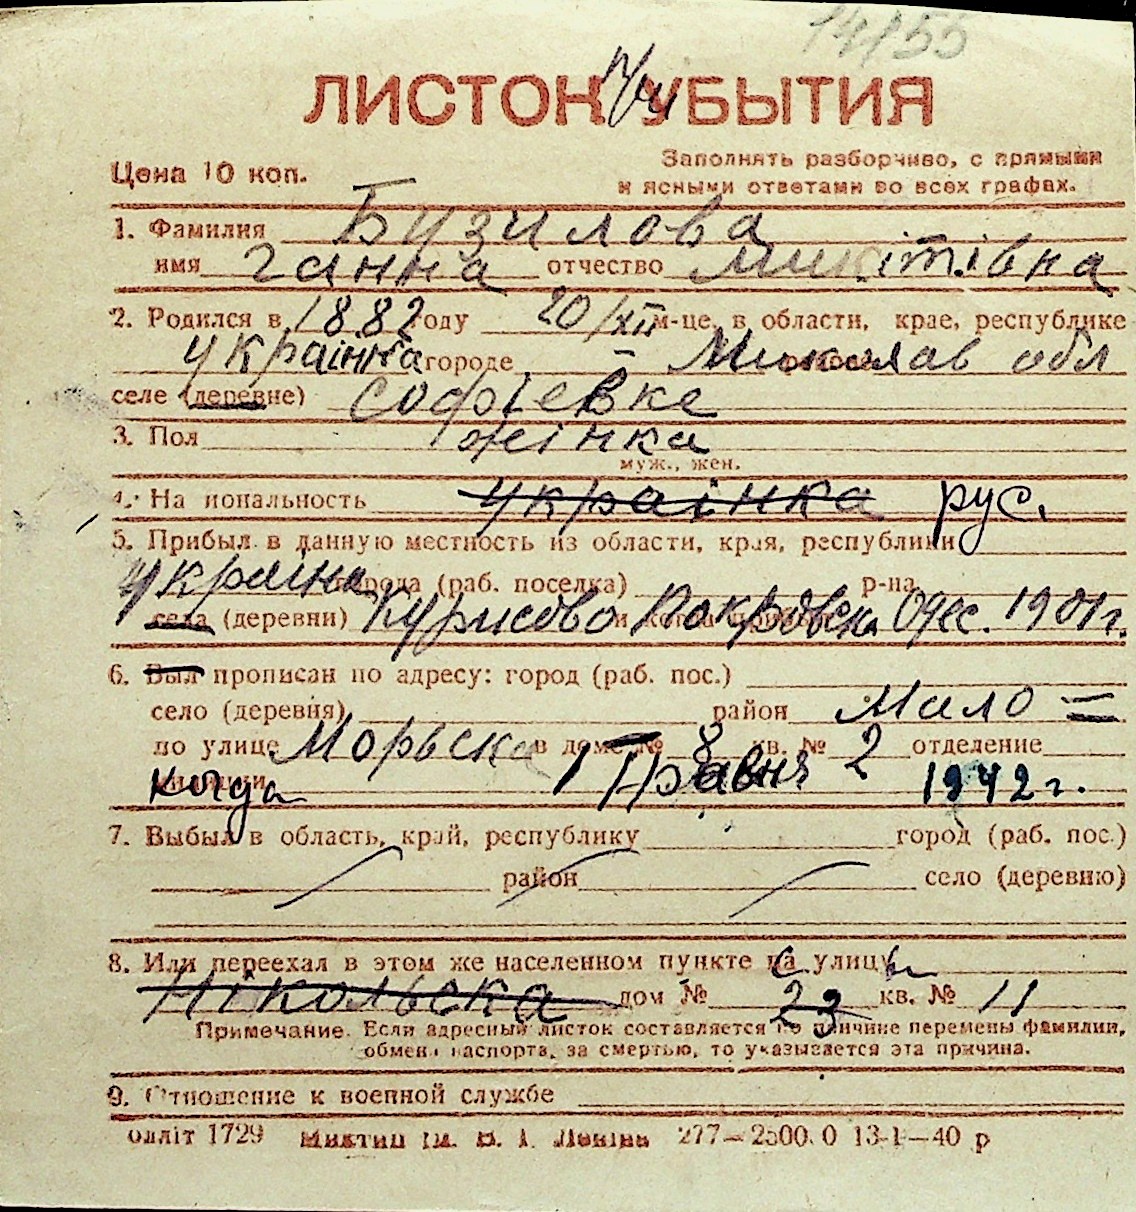 14/55
ЛИСТОК УБЫТИЯ
Цена 10 коп.
Заполнять разборчиво, с прямыми
и ясными ответами во всех графах.
1. Фамилия Бузилова
имя Ганна отчество Микітівна
2. Родился в 1882 году 20/XII м-це, в области, крае, республике
украінна городе - Миколав обл
селе (деревне) софіевке
3. Пол жінка
муж., жен.
4. На иональность украінка рус.
5. Прибыл в данную местность из области, края, республики
Украіна города (раб. поселка) р-на
села (деревни) Курисово Покровск Одес. 1901 г.
6. Был прописан по адресу: город (раб. пос.)
село (деревня) район Мало =
по улице Морьска в доме № 8 кв. № 2 отделение
милиции когда 1 Травня 1942 г.
7. Выбыл в область, край, республику город (раб. пос.)
район село (деревню)
8. Или переехал в этом же населенном пункте на улицу
Нікольска дом № 23 кв. № 11
Примечание. Если адресный листок составляется по причине перемены фамилии,
обмена паспорта, за смертью, то указывается эта причина.
9. Отношение к военной службе
олліт 1729 Миктип ім. В. І. Леніна 277—2500.0 13-1—40 р